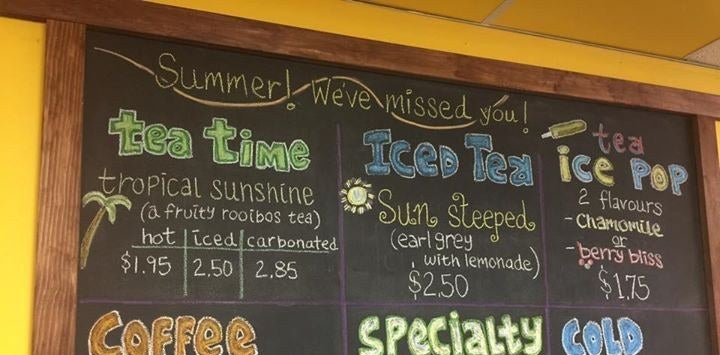 Summer! We've missed you!
tea time
tropical sunshine
(a fruity rooibos tea)
hot iced carbonated
$1.95 2.50 2.85
Iced Tea
Sun steeped
(earl grey
with lemonade)
$2.50
tea
ice pop
2 flavours
- Chamomile
or
- berry bliss
$1.75
Coffee
Specialty
Cold